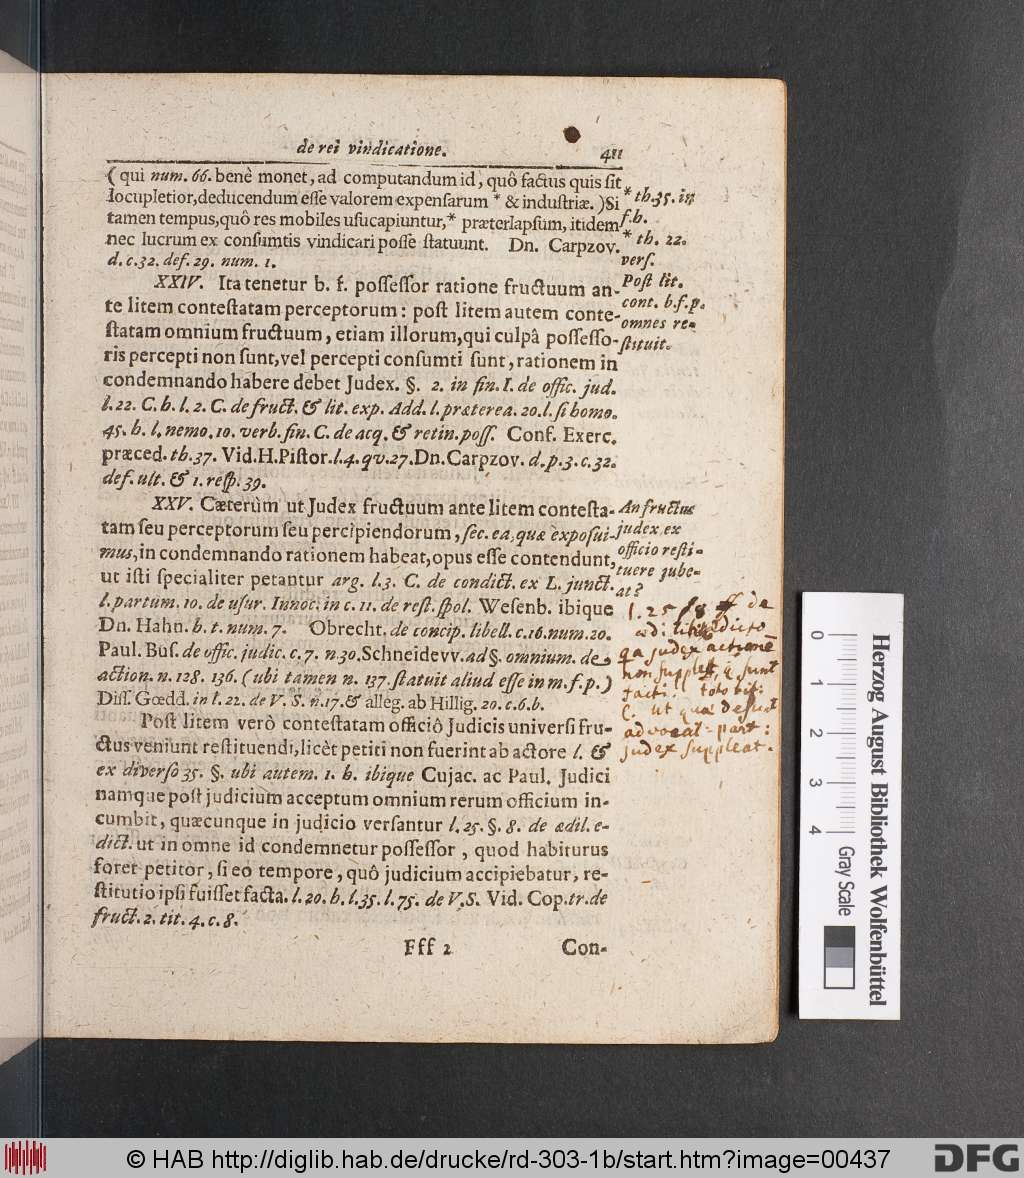 de rei vindicatione.
411
( qui num. 66. benè monet, ad computandum id, quô factus quis ſit
locupletior, deducendum eſſe valorem expenſarum * & induſtriæ. ) Si
tamen tempus, quô res mobiles uſucapiuntur, * præterlapſum, itidem
nec lucrum ex conſumtis vindicari poſſe ſtatuunt. Dn. Carpzov.
d. c. 32. def. 29. num. 1.
* th. 35. in
f. h.
* th. 22.
verſ.
XXIV. Ita tenetur b. f. poſſeſſor ratione fructuum an-
te litem conteſtatam perceptorum: poſt litem autem conte-
ſtatam omnium fructuum, etiam illorum, qui culpâ poſſeſſo-
ris percepti non ſunt, vel percepti conſumti ſunt, rationem in
condemnando habere debet Judex. §. 2. in fin. I. de offic. jud.
l. 22. C. h. l. 2. C. de fruct. & lit. exp. Add. l. præterea. 20. l. ſi homo.
45. h. l. nemo. 10. verb. fin. C. de acq. & retin. poſſ. Conf. Exerc.
præced. th. 37. Vid. H. Piſtor. l. 4. qv. 27. Dn. Carpzov. d. p. 3. c. 32.
def. ult. & 1. reſp. 39.
Poſt lit.
cont. b. f. p.
omnes re-
ſtituit.
XXV. Cæterùm ut Judex fructuum ante litem conteſta-
tam ſeu perceptorum ſeu percipiendorum, ſec. ea, quæ expoſui-
mus, in condemnando rationem habeat, opus eſſe contendunt,
ut iſti ſpecialiter petantur arg. l. 3. C. de condict. ex L. junct.
l. partum. 10. de uſur. Innoc. in c. 11. de reſt. ſpol. Weſenb. ibique
Dn. Hahn. h. t. num. 7. Obrecht. de concip. libell. c. 16. num. 20.
Paul. Buſ. de offic. judic. c. 7. n. 30. Schneidevv. ad §. omnium. de
action. n. 128. 136. ( ubi tamen n. 137. ſtatuit aliud eſſe in m. f. p. )
Diſſ. Gœdd. in l. 22. de V. S. n. 17. & alleg. ab Hillig. 20. c. 6. b.
An fructus
judex ex
officio reſti-
tuere jube-
at?
l. 25 § 8 ff de
ædi:
qa judex
non supplet, sunt
facti
C. ut quæ desunt
advocat: part:
judex suppleat.
Poſt litem verò conteſtatam officiô Judicis univerſi fru-
ctus veniunt reſtituendi, licèt petiti non fuerint ab actore l. &
ex diverſo 35. §. ubi autem. 1. h. ibique Cujac. ac Paul. Judici
namque poſt judicium acceptum omnium rerum officium in-
cumbit, quæcunque in judicio verſantur l. 25. §. 8. de ædil. e-
dict. ut in omne id condemnetur poſſeſſor, quod habiturus
foret petitor, ſi eo tempore, quô judicium accipiebatur, re-
ſtitutio ipſi fuiſſet facta. l. 20. h. l. 35. l. 75. de V. S. Vid. Cop. tr. de
fruct. 2. tit. 4. c. 8.
Fff 2
Con-
0 1 2 3 4
Gray Scale
Herzog August Bibliothek Wolfenbüttel
© HAB http://diglib.hab.de/drucke/rd-303-1b/start.htm?image=00437
DFG